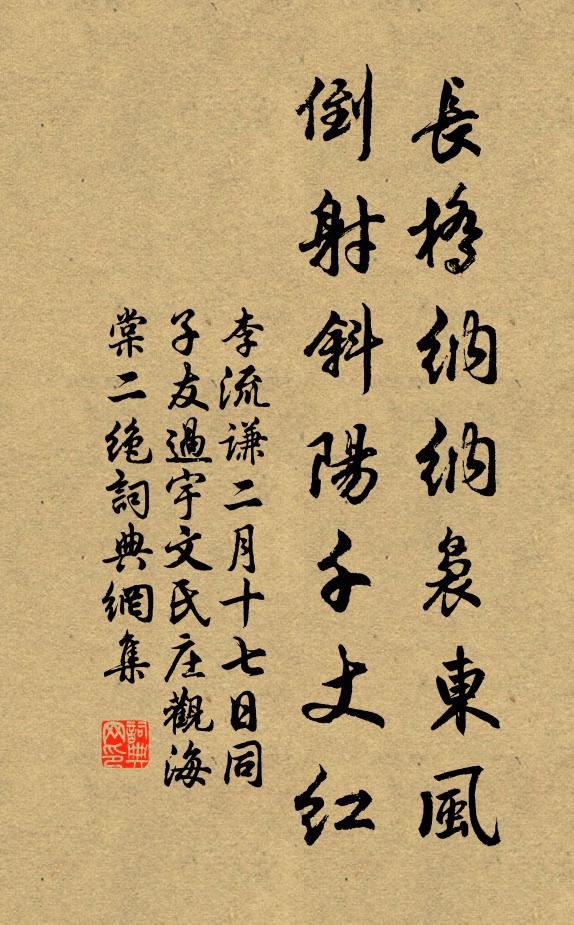 長橋納納裊東風
倒射斜陽千丈紅
李流謙二月十七日同
子友過宇文氏庄觀海
棠二绝詞典網集
詞典
网印